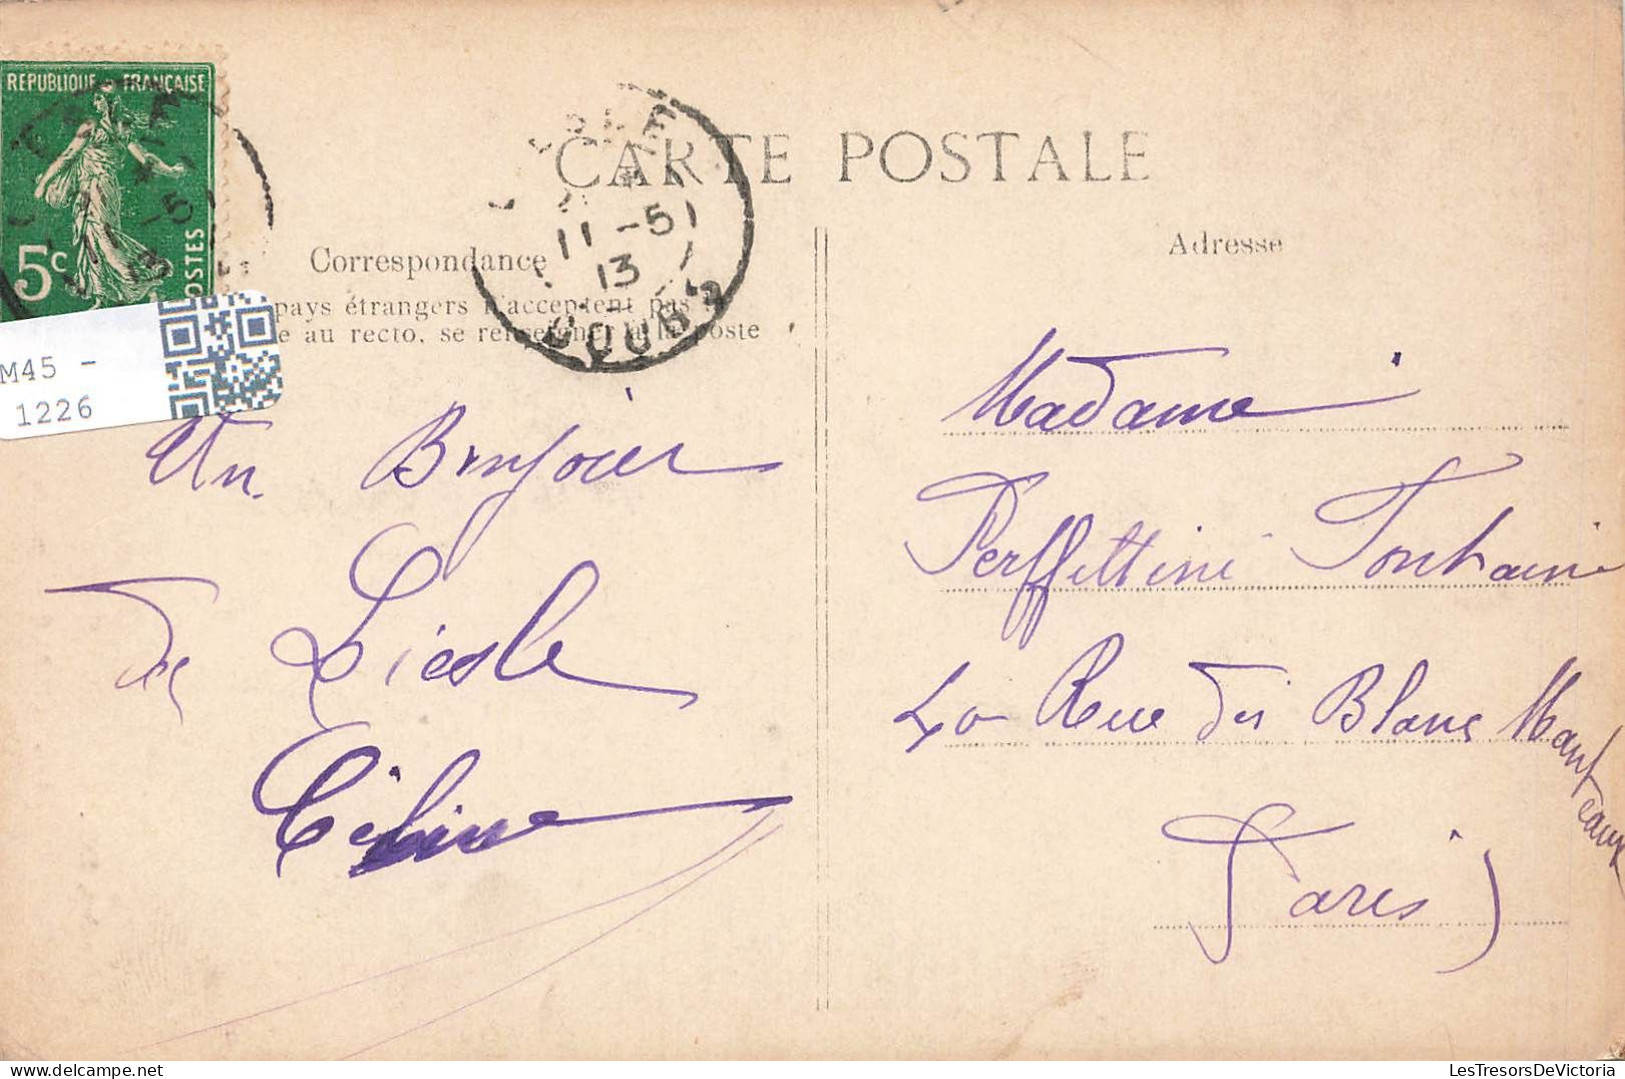 REPUBLIQUE FRANÇAISE
5c
POSTES
M45 -
1226
CARTE POSTALE
11 -5
13
DOUBS
Correspondance
pays étrangers n'acceptent pas
au recto, se renseigner à la poste
Adresse
Un Bonjour
de Liesle
Céline
Madame
Perffettini Fontaine
40 Rue des Blanc Manteaux
Paris
LesTresorsDeVictoria